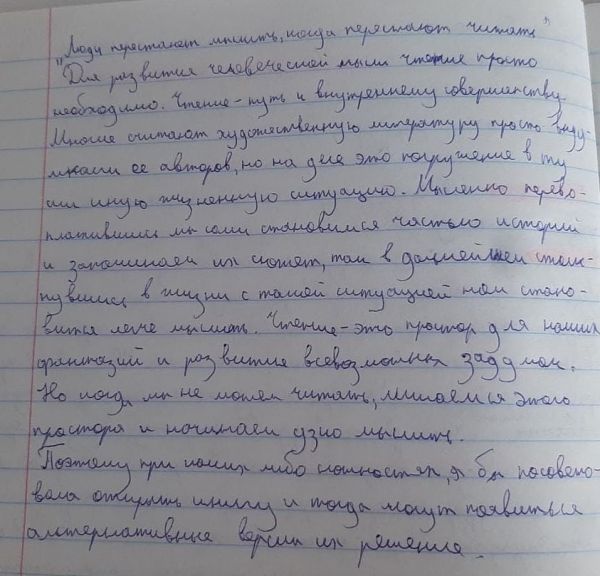 "Люди перестают мыслить, когда перестают читать"
Для развития человеческой мысли чтение просто
необходимо. Чтение - путь к внутреннему совершенству.
Многие считают художественную литературу просто выду-
мками ее авторов, но на деле это погружение в ту
или иную жизненную ситуацию. Мысленно перево-
платившись мы сами становимся частью историй
и запоминаем их сюжет, там в дальнейшем столк-
нувшись в жизни с такой ситуацией нам стано-
вится легче мыслить. Чтение - это простор для наших
фантазий и развития всевозможных задумок.
Но когда мы не можем читать, лишаемся этого
простора и начинаем узко мыслить.
Поэтому при каких либо я бы посовето-
вала открыть книгу и тогда могут появиться
альтернативные версии их решения.